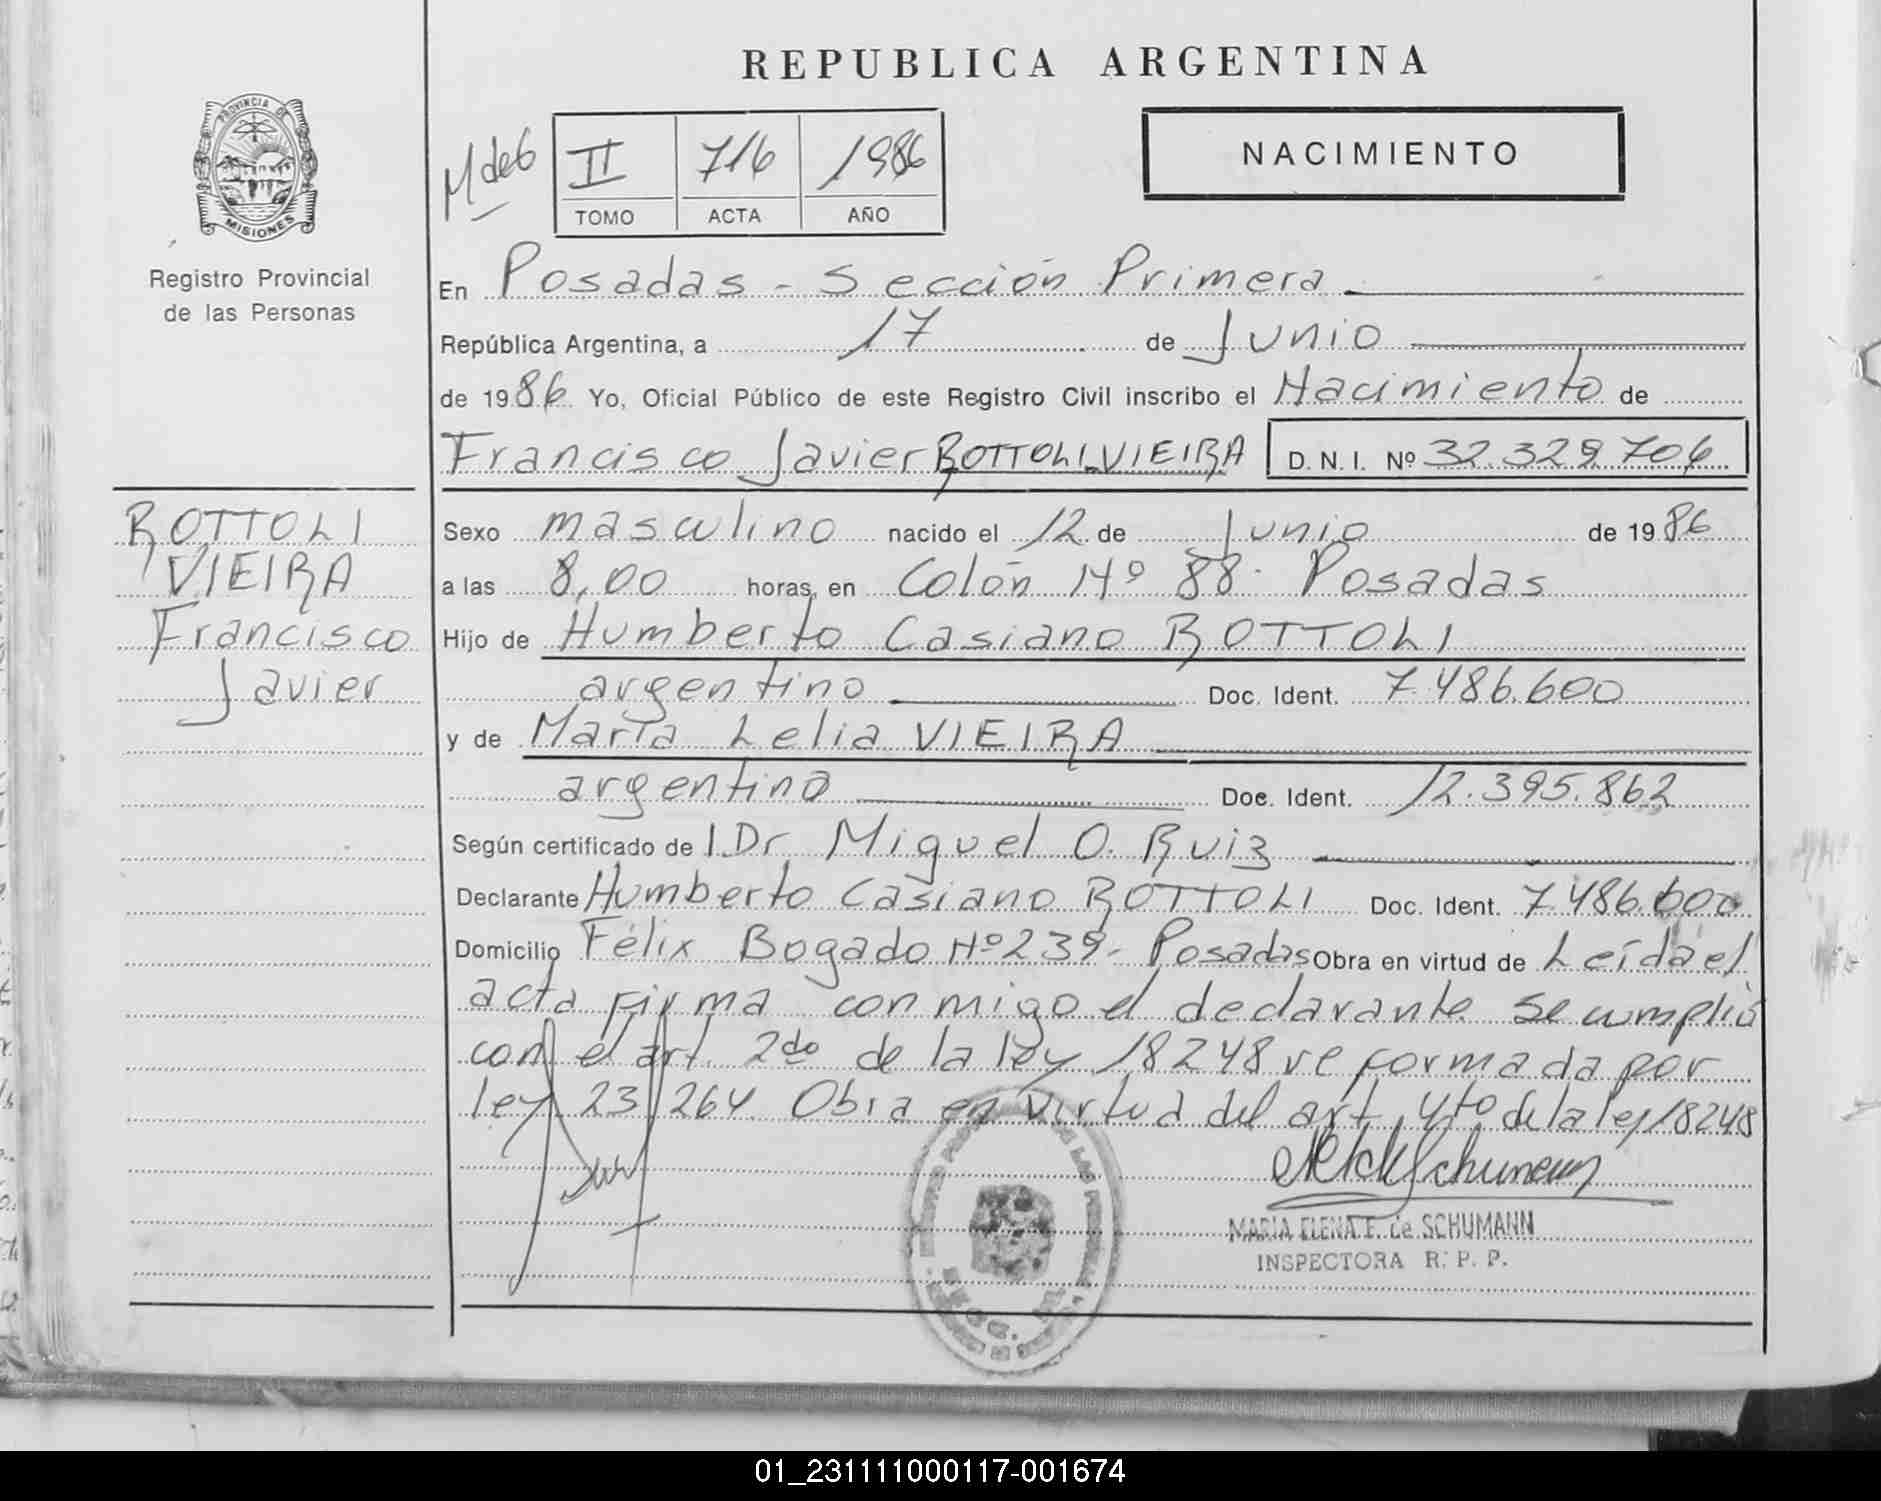 REPUBLICA ARGENTINA
PROVINCIA DE
MISIONES
Registro Provincial
de las Personas
M de 6
II 716 1986
TOMO ACTA AÑO
NACIMIENTO
En Posadas - Sección Primera
República Argentina, a 17 de Junio
de 1986 Yo, Oficial Público de este Registro Civil inscribo el Nacimiento de
Francisco Javier ROTTOLI VIEIRA D.N.I. Nº 32.329.706
ROTTOLI
VIEIRA
Francisco
Javier
Sexo masculino nacido el 12 de Junio de 1986
a las 8,00 horas, en Colón Nº 88. Posadas
Hijo de Humberto Casiano ROTTOLI
argentino Doc. Ident. 7.486.600
y de María Lelia VIEIRA
argentina Doc. Ident. 12.395.862
Según certificado de l Dr Miguel O. Ruiz
Declarante Humberto Casiano ROTTOLI Doc. Ident. 7.486.600
Domicilio Félix Bogado Nº 239- Posadas Obra en virtud de Leída el
acta firma conmigo el declarante. Se cumplió
con el art. 2do de la ley 18248 reformada por
ley 23264. Obra en virtud del art. 4to de la ley 18248
MARIA ELENA E. de SCHUMANN
INSPECTORA R. P. P.
01_231111000117-001674